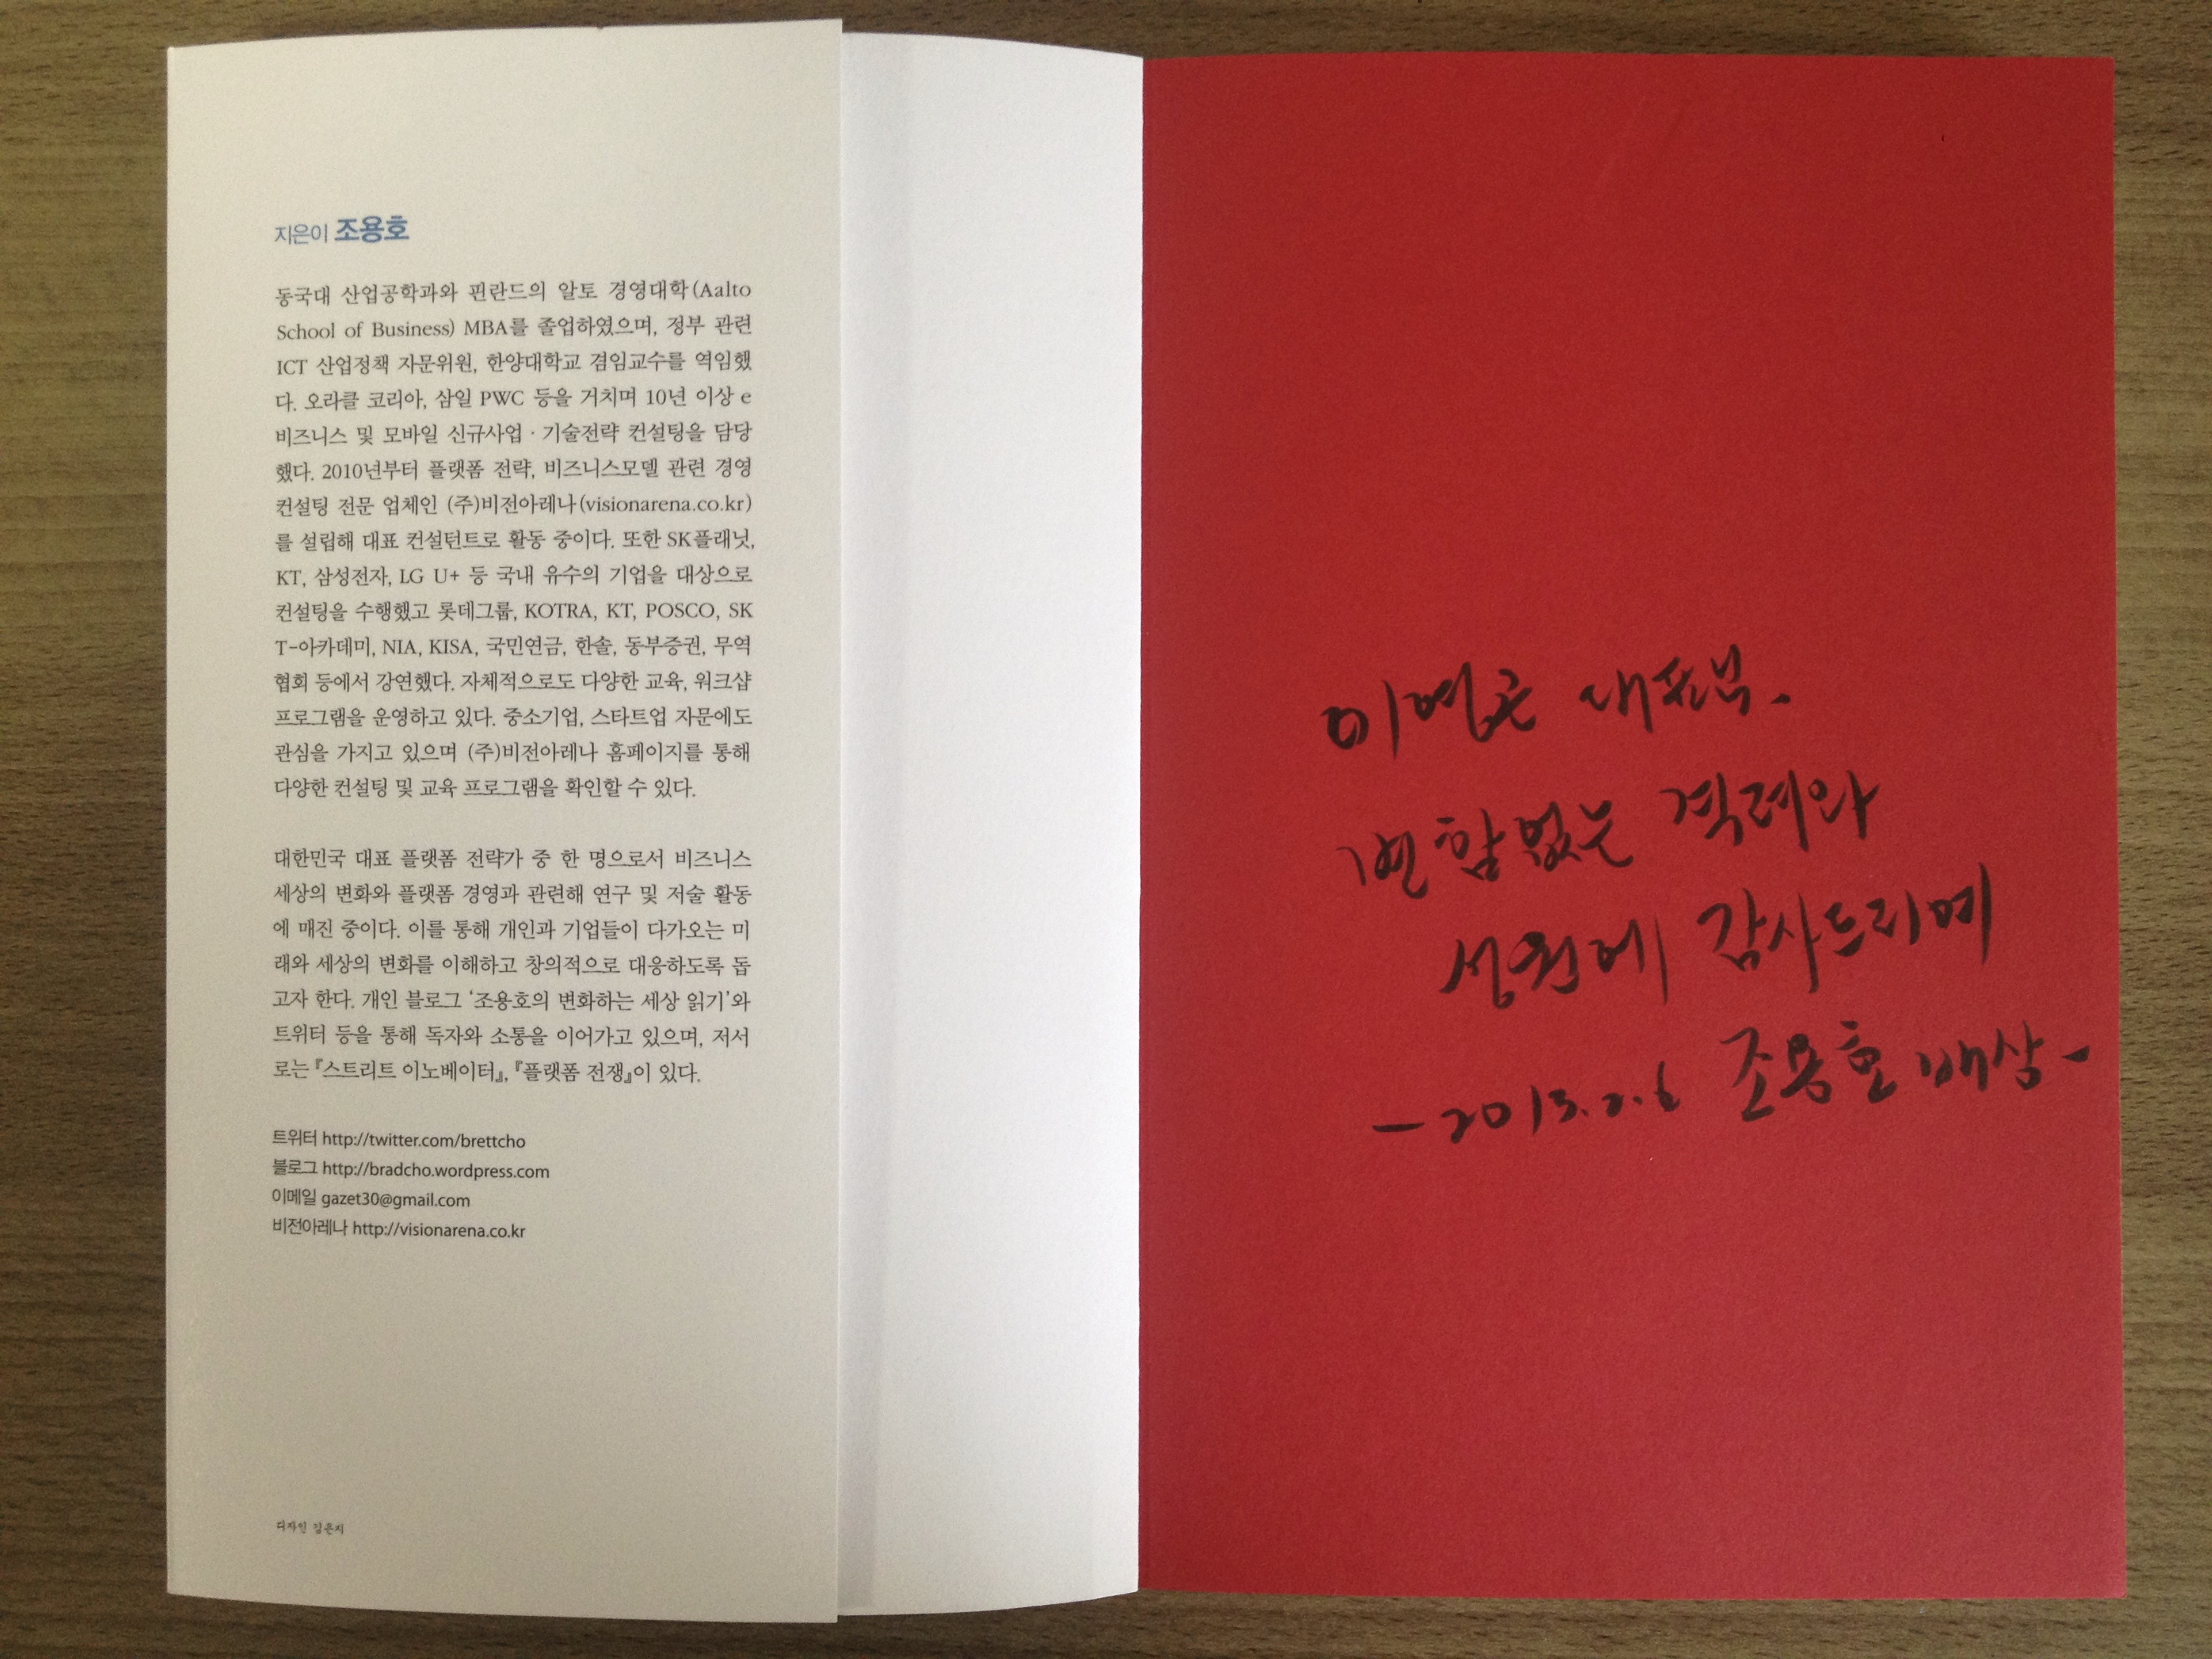 지은이 조용호
동국대 산업공학과와 핀란드의 알토 경영대학(Aalto
School of Business) MBA를 졸업하였으며, 정부 관련
ICT 산업정책 자문위원, 한양대학교 겸임교수를 역임했
다. 오라클 코리아, 삼일 PWC 등을 거치며 10년 이상 e
비즈니스 및 모바일 신규사업 · 기술전략 컨설팅을 담당
했다. 2010년부터 플랫폼 전략, 비즈니스모델 관련 경영
컨설팅 전문 업체인 (주)비전아레나(visionarena.co.kr)
를 설립해 대표 컨설턴트로 활동 중이다. 또한 SK플래닛,
KT, 삼성전자, LG U+ 등 국내 유수의 기업을 대상으로
컨설팅을 수행했고 롯데그룹, KOTRA, KT, POSCO, SK
T-아카데미, NIA, KISA, 국민연금, 한솔, 동부증권, 무역
협회 등에서 강연했다. 자체적으로도 다양한 교육, 워크샵
프로그램을 운영하고 있다. 중소기업, 스타트업 자문에도
관심을 가지고 있으며 (주)비전아레나 홈페이지를 통해
다양한 컨설팅 및 교육 프로그램을 확인할 수 있다.
대한민국 대표 플랫폼 전략가 중 한 명으로서 비즈니스
세상의 변화와 플랫폼 경영과 관련해 연구 및 저술 활동
에 매진 중이다. 이를 통해 개인과 기업들이 다가오는 미
래와 세상의 변화를 이해하고 창의적으로 대응하도록 돕
고자 한다. 개인 블로그 '조용호의 변화하는 세상 읽기'와
트위터 등을 통해 독자와 소통을 이어가고 있으며, 저서
로는 『스트리트 이노베이터』, 『플랫폼 전쟁』이 있다.
트위터 http://twitter.com/brettcho
블로그 http://bradcho.wordpress.com
이메일 gazet30@gmail.com
비전아레나 http://visionarena.co.kr
디자인 김은지
대표님.
변함없는 격려와
성원에 감사드리며
-2013.2.6 조용호 배상-